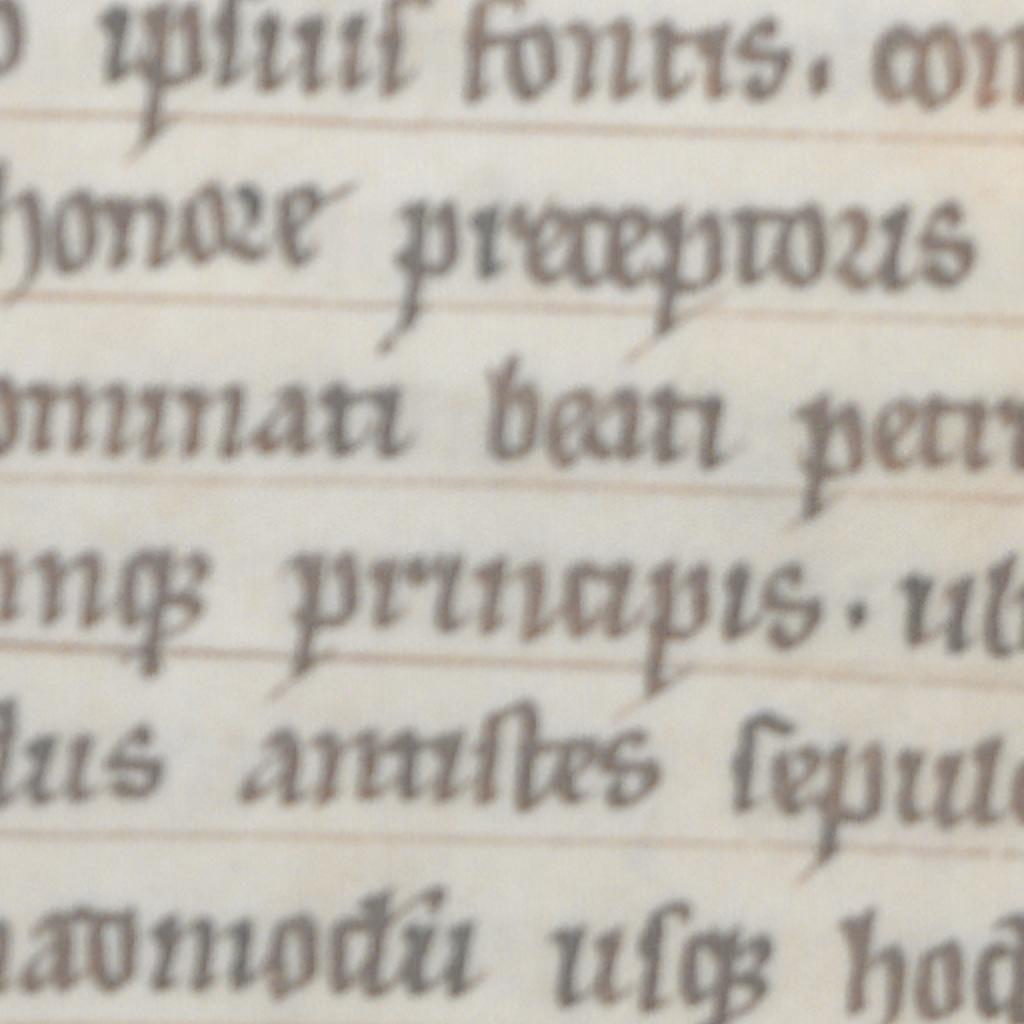 ipsius fontis. con
honore preceptoris
ominati beati petri
inqꝫ principis. ub
lus antistes sepulc
modū usqꝫ hod